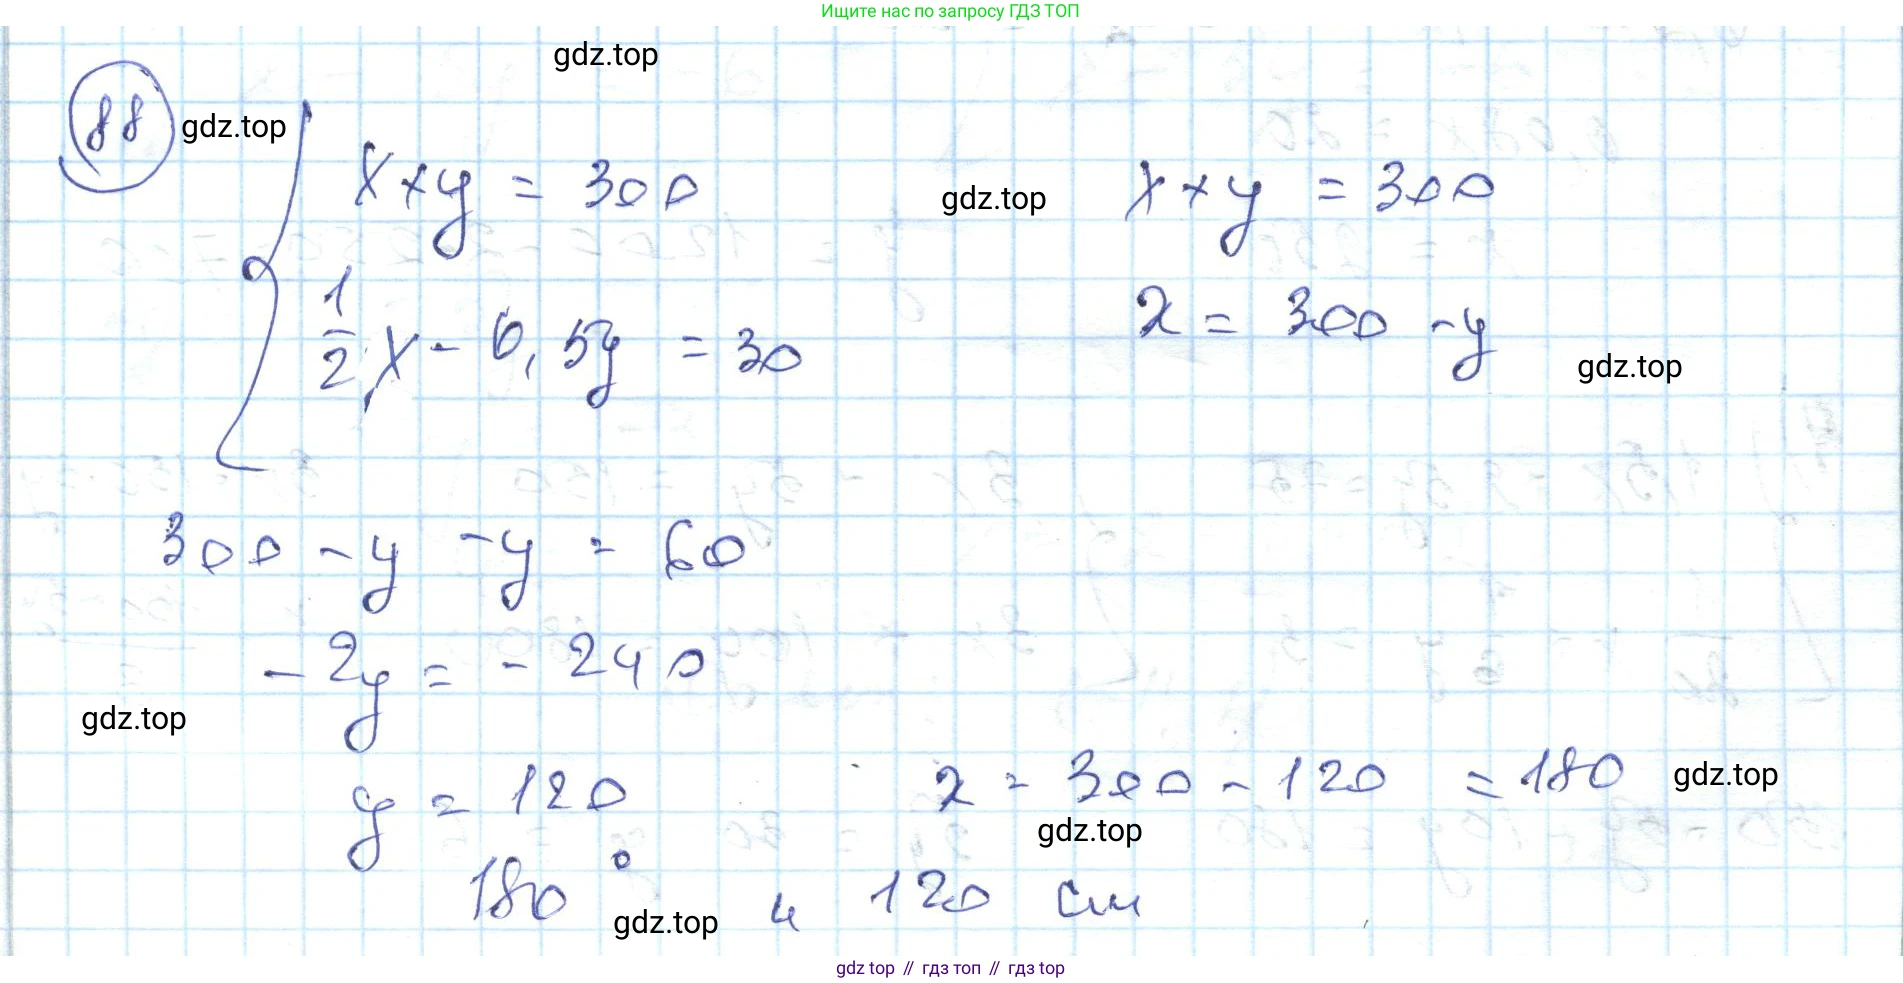 Ищите нас по запросу ГДЗ ТОП
gdz.top
88 gdz.top
x + y = 300 gdz.top x + y = 300
1/2 x - 0,5y = 30 x = 300 - y
gdz.top
300 - y - y = 60
- 2y = - 240
gdz.top
y = 120 x = 300 - 120 = 180 gdz.top
gdz.top
180° и 120 см
gdz.top
gdz top // гдз топ // гдз top